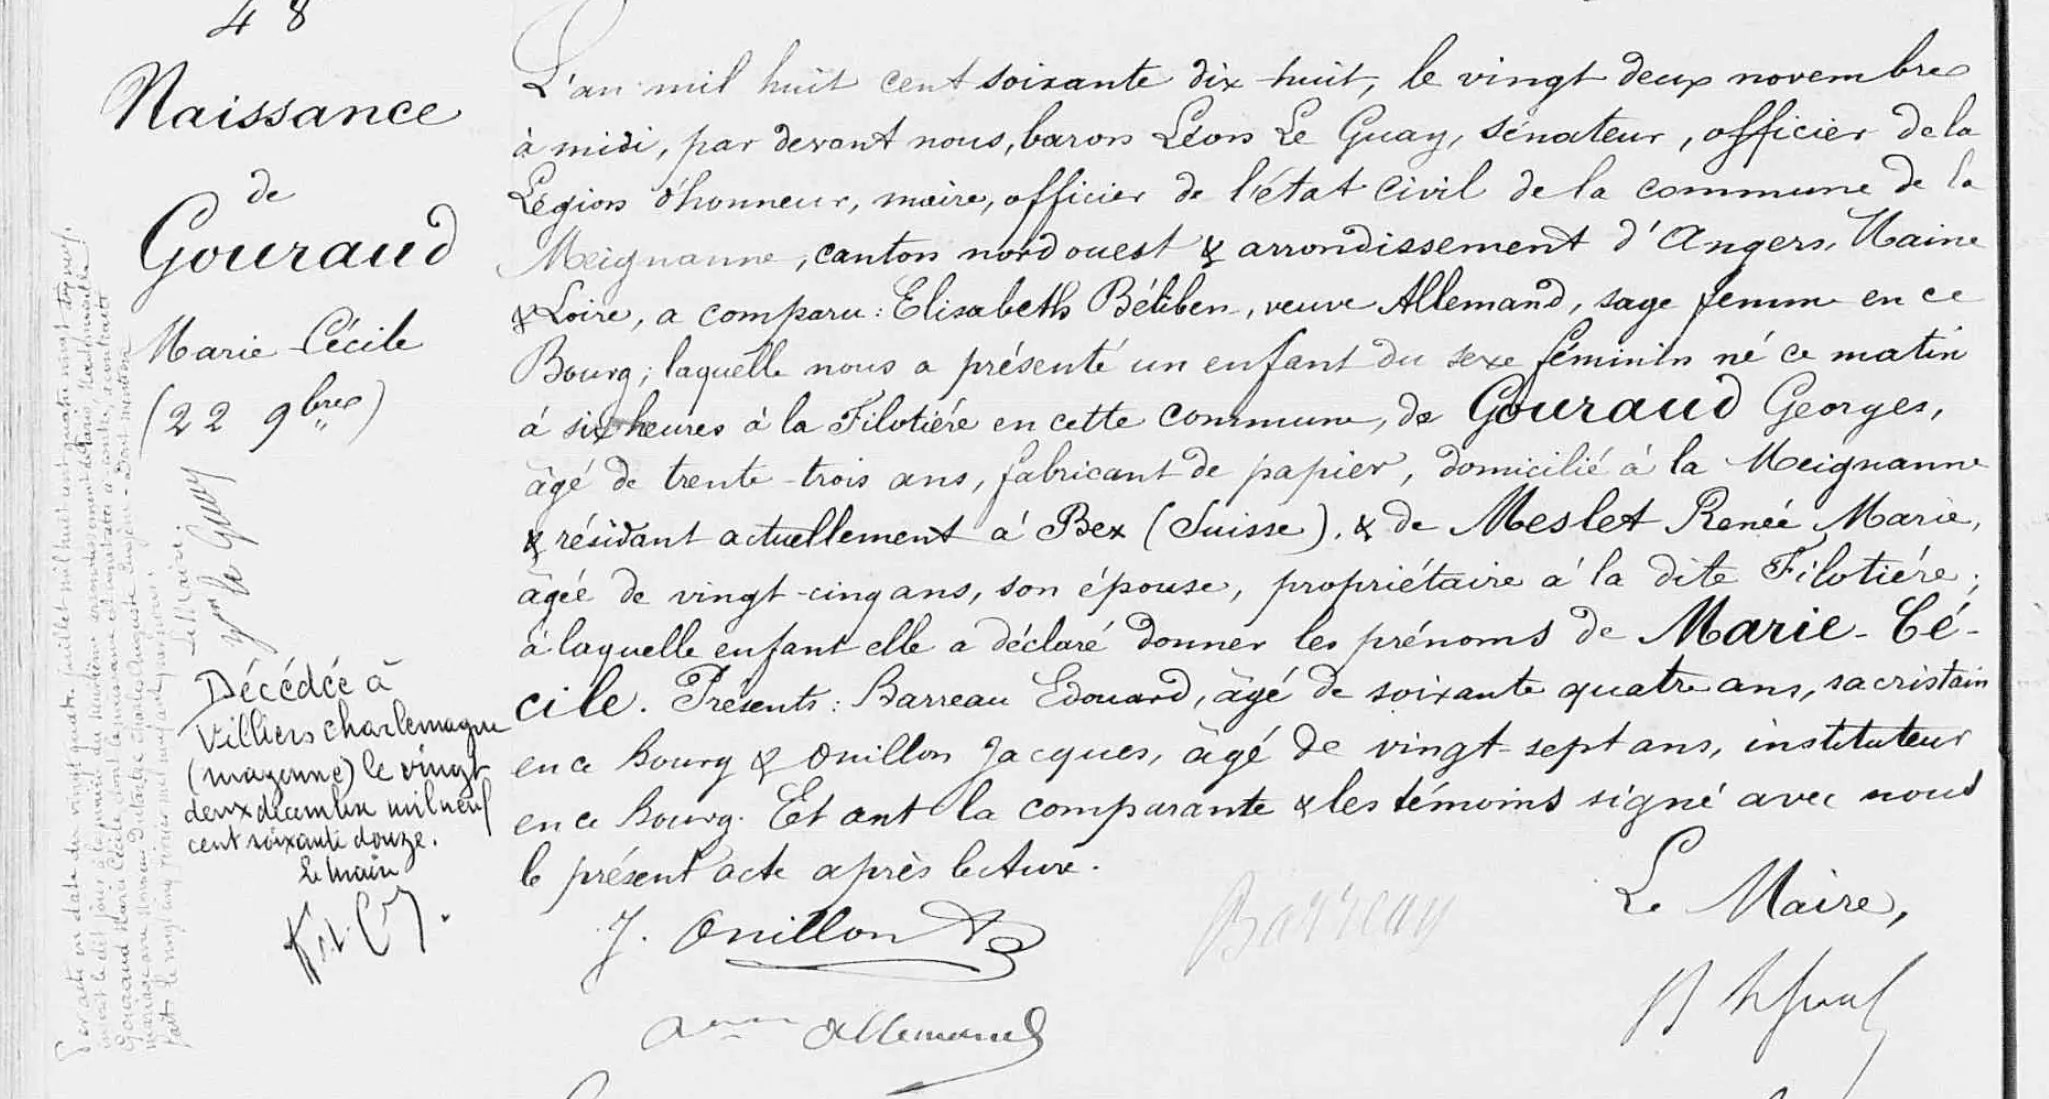 48
Naissance
de
Gouraud
Marie-Cécile
(22 9bre)
L'an mil huit cent soixante dix-huit, le vingt deux novembre
à midi, par devant nous, baron Léon Le Guay, sénateur, officier de la
Légion d'honneur, maire, officier de l'état civil de la commune de la
Meignanne, canton nord ouest & arrondissement d'Angers, Maine
& Loire, a comparu : Elisabeth Béliben, veuve Allemand, sage femme en ce
Bourg; laquelle nous a présenté un enfant du sexe féminin né ce matin
à six heures à la Filotière en cette commune, de Gouraud Georges,
âgé de trente-trois ans, fabricant de papier, domicilié à la Meignanne
& résidant actuellement à Bex (Suisse). & de Meslet Renée Marie,
âgée de vingt-cinq ans, son épouse, propriétaire à la dite Filotière;
à laquelle enfant elle a déclaré donner les prénoms de Marie-Cé-
cile. Présents : Barreau Edouard, âgé de soixante quatre ans, sacristain
en ce bourg & Onillon Jacques, âgé de vingt-sept ans, instituteur
en ce bourg. Et ont la comparante & les témoins signé avec nous
le présent acte après lecture.
Le Maire,
J. Onillon
Barreau
Allemand
Par acte en date du vingt quatre juillet mil huit cent quatre vingt dix neuf,
Gouraud Marie Cécile
Le Maire
Le Guay
Décédée à
Villiers charlemagne
(mayenne) le vingt
deux décembre mil neuf
cent soixante douze.
Le maire